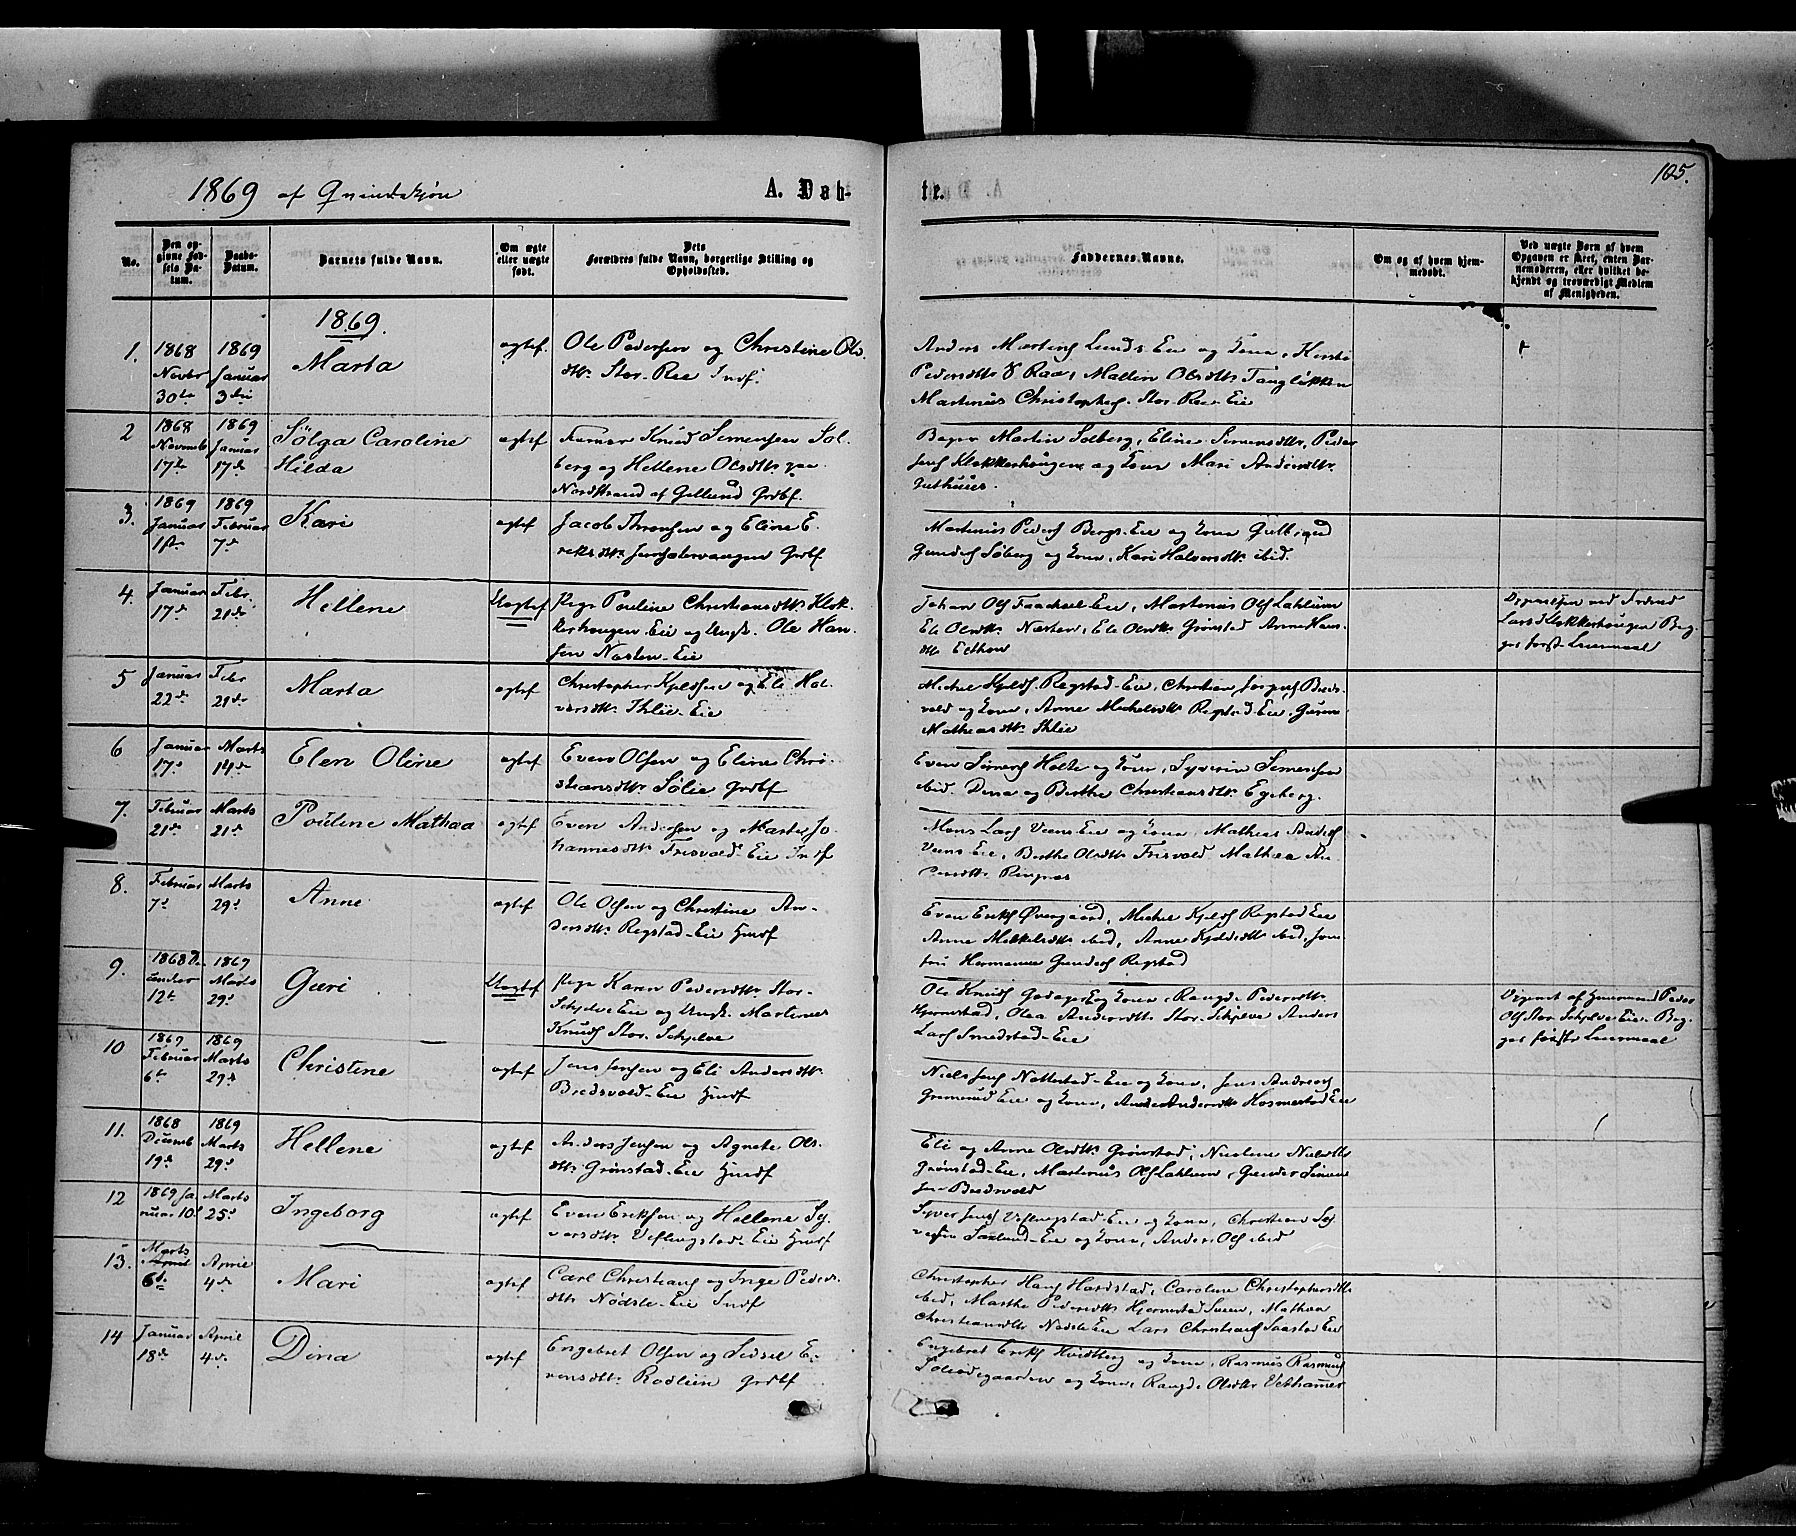 1869 af Qvindekjøn
A. Dab-
te.
105.
No.
Den op-
givne Fød-
sels Da-
tum.
Daabs-
Datum.
Barnets fulde Navn.
Om ægte
eller uægte
født.
Dets
Forældres fulde Navn, borgerlige Stilling og
Opholdssted.
Faddernes Navne.
Om og af hvem hjem-
medøbt.
Ved uægte Børn af hvem
Opgaven er skeet, enten Bar-
nemoderen, eller hvilket be-
kjendt og troværdigt Medlem
af Menigheden.
1869.
1.
1868
Novbr
30te
1869
Januar
3die
Marta
ægtef.
Ole Pedersen og Christine Ols
dttr. Stor-Ree Indf.
Anders Martins Lunds Eie og Kone, Kirsti
Pedersdttr Raa, Mallin Olsdttr Tangløkken
Martinus Christophers. Stor-Ree-Eie
2
1868
Novemb
17de
1869
Januar
17de
Sölga Caroline
Hilda
ægtef
Farver Knud Simensen Sol-
berg og Hellene Olsdttr paa
Nordstrand af Gillund Grdbf.
Bager Martin Solberg, Eline Simensdttr, Peder
Jens Klokkerhougen og Kone Mari Andersdttr
Guthuses.
3.
1869
Januar
1ste
1869
Februar
7de
Kari
ægtef
Jacob Thronsen og Eline E-
riksdttr Grdbf
Martinus Peders Bergs-Eie og Kone
Gunders Søberg og Kone, Kari Halvorsdttr ibid.
4.
Januar
17de
Febr.
21de
Hellene
Uægtef
Pige Pouline Christiansdttr Klok-
kerhougen-Eie og Ungk. Ole Han-
sen Nasten-Eie
Johan Ols Eie, Martinus Ols Laklum
Ole Olsdttr Nasten, Ele Olsdttr Grønstad Anne Hans
dttr
Lars Klokkerhougen Beg-
ges første Leiermaal
5
Januar
22de
Febr
21de
Marta
ægtef
Christopher Kjeldsen og Eli Hal-
vorsdttr Eie
Michel Kjelds Regstad-Eie, Christian Breds-
vold og Kone, Anne Michelsdttr Regstad-Eie, Guren
Mathiasdttr
6
Januar
17de
Marts
14de
Elen Oline
ægtef
Even Olsen og Eline Chri-
stiansdttr Sølie Grdbf
Even Holte og Kone, Syverin Simensen
ibid. Dina og Berthe Christiansdttr Egeberg.
7.
Februar
21de
Marts
21de
Pouline Mathea
ægtef
Even Andersen og Marte Jo-
hannesdttr Frisvold-Eie Indf
Mons Lars Veens Eie og Kone, Mathias Anders
Veens Eie, Berthe Olsdttr Frisvold Mathea An-
dersdttr Ringnes
8.
Februar
7de
Marts
29de
Anne
ægtef
Ole Olsen og Christine An-
dersdttr Regstad-Eie Huusf
Even Eriks Overgaard, Michel Kjelds Regstad Eie
Anne Mikkelsdttr ibid, Anne Kjeldsdttr ibid, Jom-
fru Hermanna Gunders Regstad
9.
1868 De-
cember
12te
1869
Marts
29de
Guri
Uægtef
Pige Karen Pedersdttr Stor-
Schjelve Eie og Ungk. Martinus
Knuds Stor-Schjelve
Ole Knuds og Kone, Rangd. Pedersdttr
Hjernstad, Olea Andersdttr Stor-Schjelve Anders
Lars Smedstad-Eie
Opgivet af Huusmand Peder
Ols Stor-Schjelve-Eie-Beg-
ges første Leiermaal
10
1869
Februar
6te
1869
Marts
29de
Christine
ægtef
Jens Jensen og Eli Andersdttr
Bredsvold-Eie Huusf
Niels Jens Nettestad-Eie og Kone, Jens Anders
Eie og Kone, Anne Andersdttr Hosmestad Eie
11.
1868
Decemb
19de
1869
Marts
29de
Hellene
ægtef
Anders Jensen og Agnete Ols-
dttr Grønstad-Eie Huusf
Eli og Anne Olsdttr Grønstad, Nicoline Nielsdttr
Grønstad-Eie, Martinus Ols Laklum, Gunder Simen
sen Bredsvold
12
1869 Ja
nuar 10de
Marts
25de
Ingeborg
ægtef
Even Eriksen og Hellene Sy-
versdttr Veflingstad-Eie Huusf
Syver Jens Veflingstad-Eie og Kone, Christian Sy-
versen Eie og Kone, Anders Ols ibid
13.
Marts
6te
April
4de
Mari
ægtef
Carl Christians og Inge Peders-
dttr Nødsle-Eie Indf
Christopher Hans Hardstad, Caroline Christophersdttr
ibid, Marthe Pedersdttr Hjernestad Mathea
Christiansdttr Nødsle Eie Lars Christians Saastad Eie
14
Januar
18de
April
4de
Dina
ægtef
Engebret Olsen og Sidsel E-
vensdttr Rodlien Grdbf
Engebret Eriks Hvidberg og Kone, Rasmus Rasmus
og Kone, Rangd. Olsdttr Vethamer